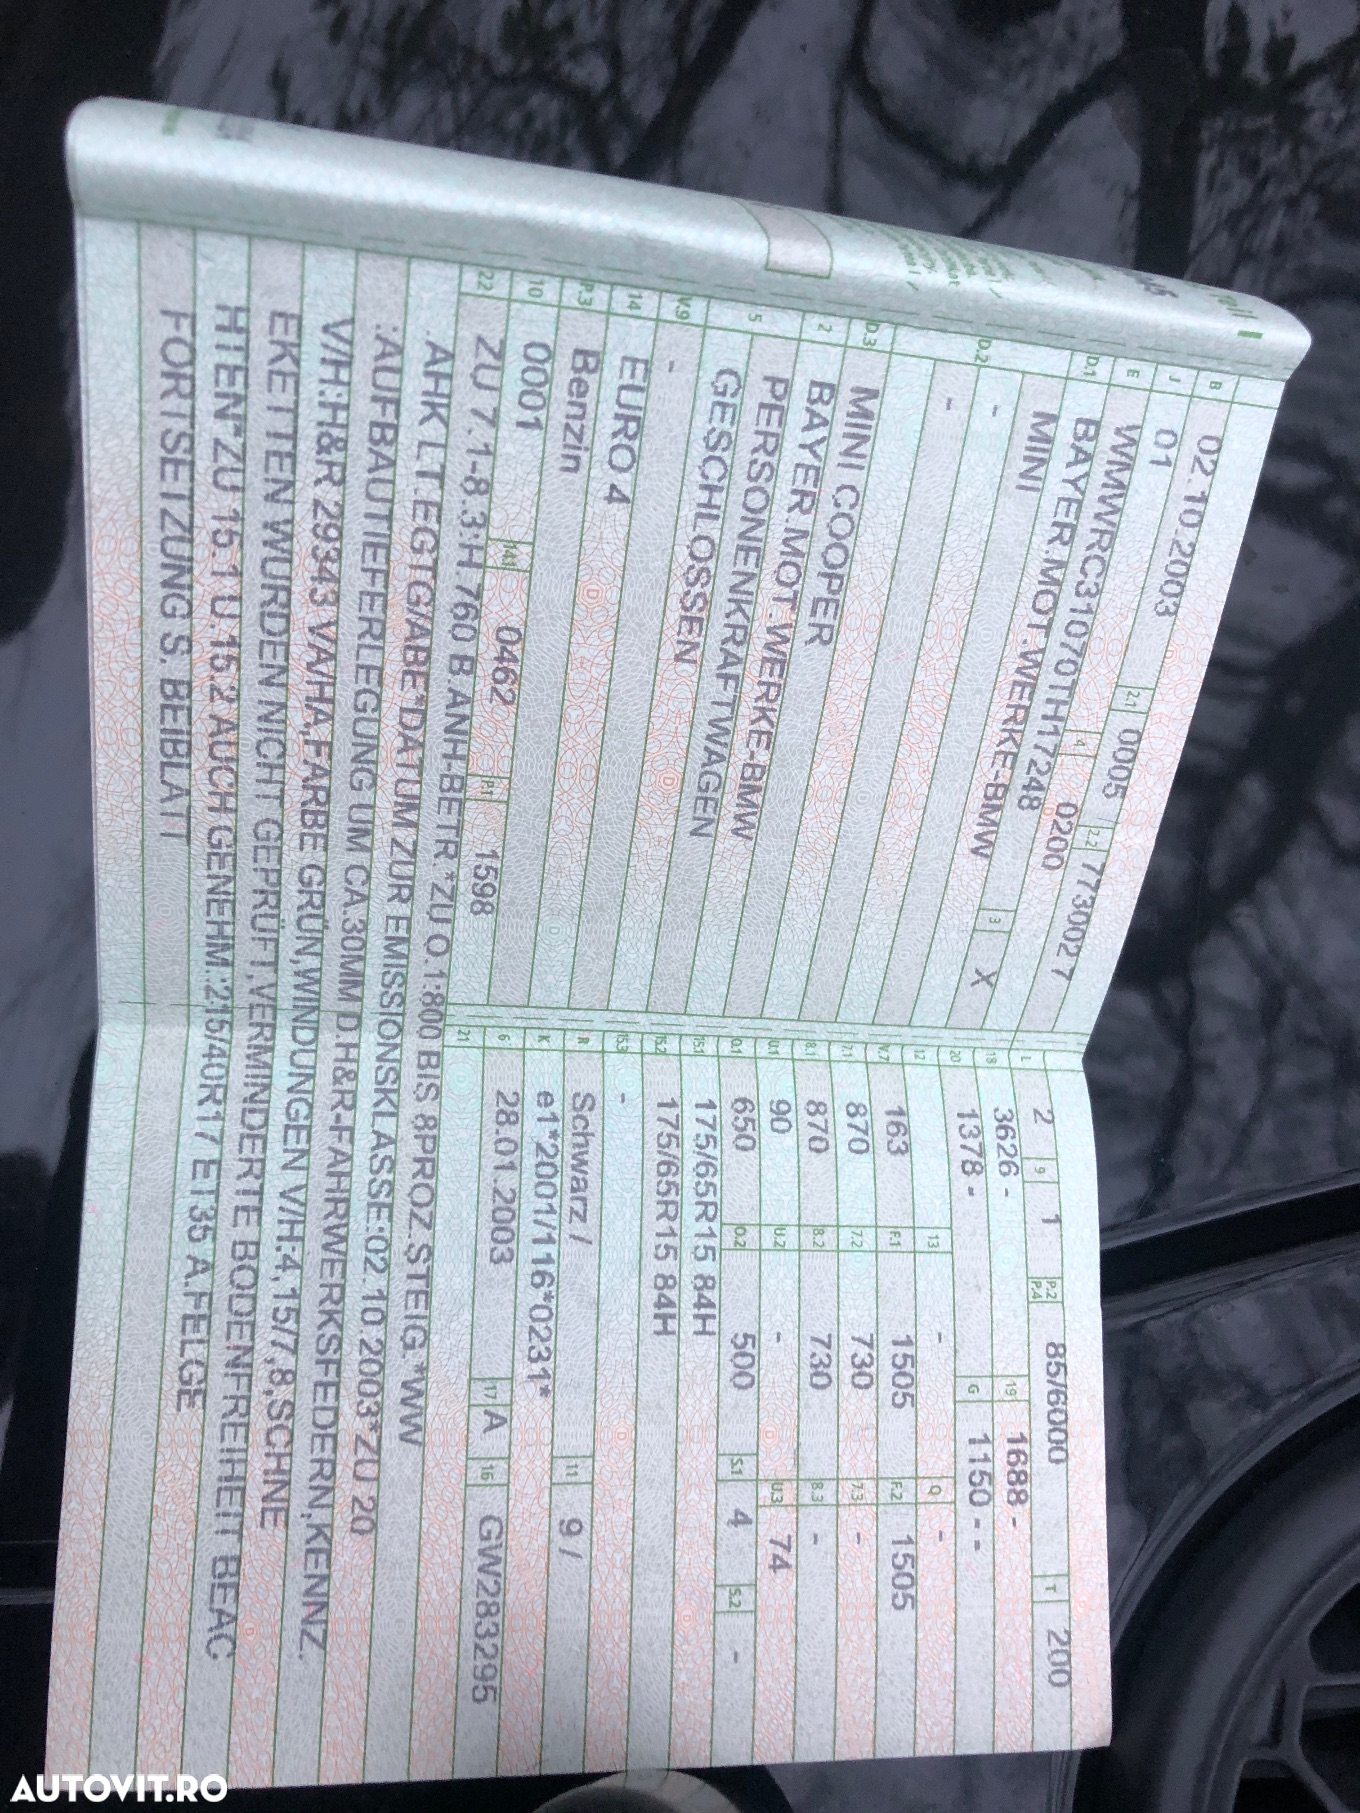 B 02.10.2003
J 01
E WMWRC31070TH17248 2.1 0005 2.2 7730027
D.1 BAYER.MOT.WERKE-BMW
MINI 4 0200
D.2 - 3 X
-
D.3 MINI COOPER
2 BAYER.MOT.WERKE-BMW
5 PERSONENKRAFTWAGEN
GESCHLOSSEN
V.9 -
14 EURO 4
P.3 Benzin
10 0001 14.1 0462 P.1 1598
L 2 9 1 P.2 P.4 85/6000 T 200
18 3626 - 19 1688 -
20 1378 - G 1150 - -
12 13 - Q -
V.7 163 F.1 1505 F.2 1505
7.1 870 7.2 730 7.3 -
8.1 870 8.2 730 8.3 -
U.1 90 U.2 - U.3 74
O.1 650 O.2 500 S.1 4 S.2 -
15.1 175/65R15 84H
15.2 175/65R15 84H
15.3 -
R Schwarz / 11 9 /
K e1*2001/116*0231*
6 28.01.2003 17 A 16 GW283295
21
22 ZU 7.1-8.3:H.760 B.ANH-BETR.*ZU O.1:800 BIS 8PROZ.STEIG.*WW
.AHK LT.EGTG/ABE*DATUM ZUR EMISSIONSKLASSE:02.10.2003*ZU 20
:AUFBAUTIEFERLEGUNG UM CA.30MM D.H&R-FAHRWERKSFEDERN,KENNZ.
V/H:H&R 29343 VA/HA,FARBE GRÜN,WINDUNGEN V/H:4,15/7,8,SCHNE
EKETTEN WURDEN NICHT GEPRÜFT,VERMINDERTE BODENFREIHEIT BEAC
HTEN*ZU 15.1 U.15.2 AUCH GENEHM.:215/40R17 ET35 A.FELGE
FORTSETZUNG S. BEIBLATT
AUTOVIT.RO